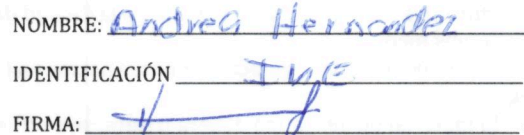 NOMBRE: Andrea Hernandez
IDENTIFICACIÓN INE
FIRMA: